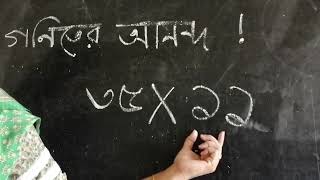 গনিতের আনন্দ !
৩৫X ১১